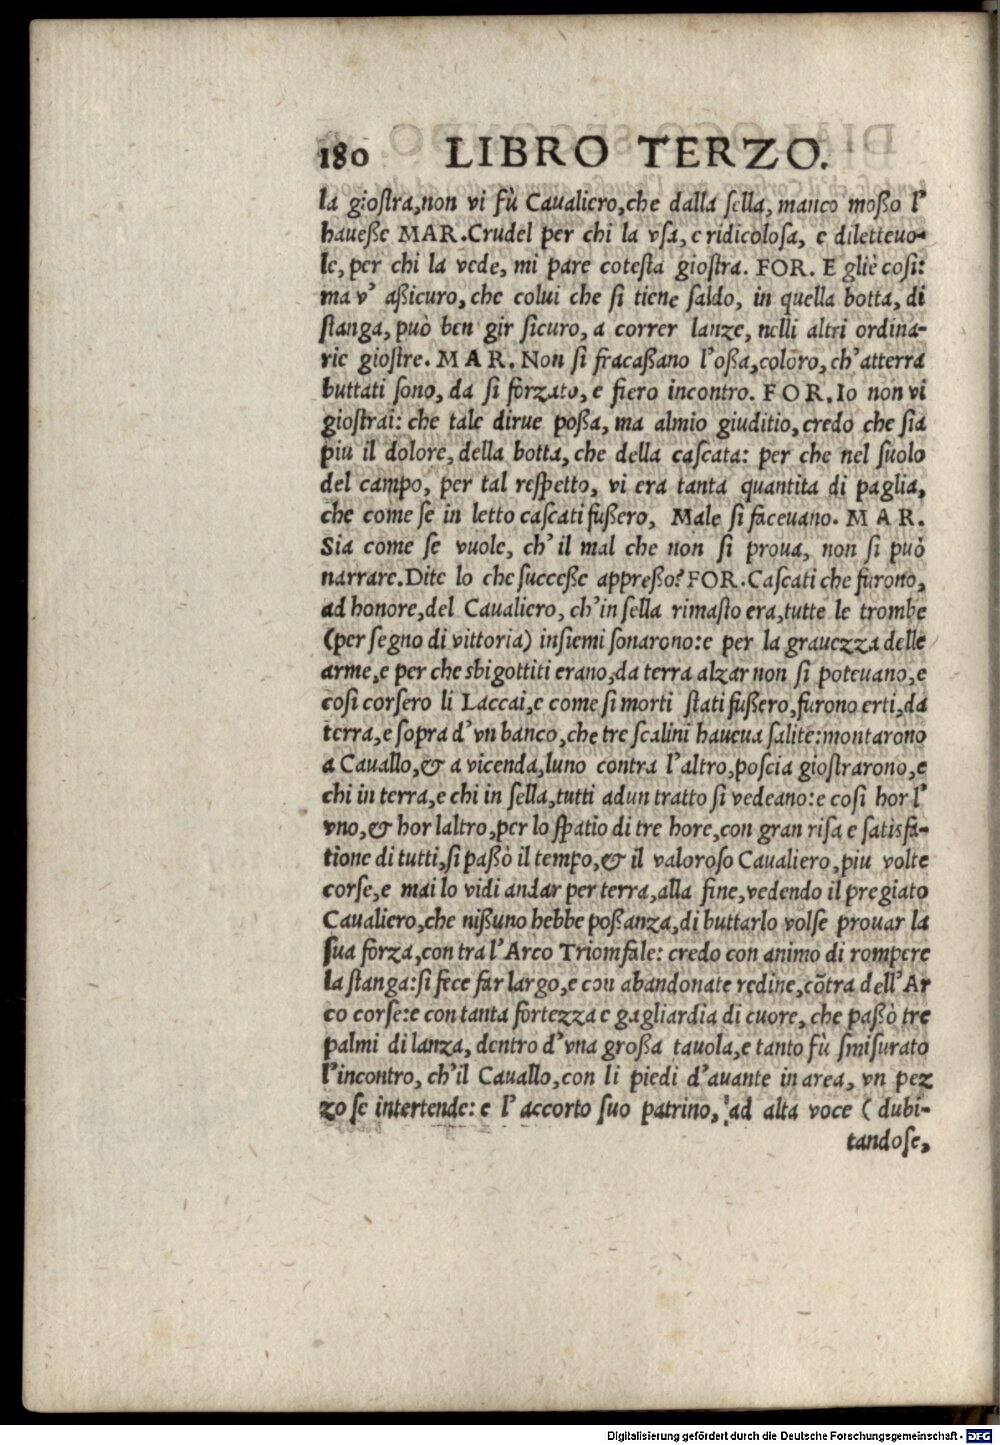 180 LIBRO TERZO.
la gioſtra,non vi fù Caualiero,che dalla ſella, manco moßo l'
haueße MAR.Crudel per chi la vſa, e ridicoloſa, e diletteuo-
le, per chi la vede, mi pare coteſta gioſtra. FOR. E gliè coſi:
ma v' aßicuro, che colui che ſi tiene ſaldo, in quella botta, di
ſtanga, può ben gir ſicuro, a correr lanze, nelli altri ordina-
rie gioſtre. MAR. Non ſi fracaßano l'oßa,coloro, ch'atterra
buttati ſono, da ſi forzato, e fiero incontro. FOR.Io non vi
gioſtrai: che tale dirue poßa, ma almio giuditio, credo che ſia
piu il dolore, della botta, che della caſcata: per che nel ſuolo
del campo, per tal reſpetto, vi era tanta quantita di paglia,
che come ſe in letto caſcati fußero, Male ſi faceuano. MAR.
Sia come ſe vuole, ch' il mal che non ſi proua, non ſi può
narrare.Dite lo che ſucceße appreßo? FOR.Caſcati che furono,
ad honore,del Caualiero, ch'in ſella rimaſto era,tutte le trombe
(per ſegno di vittoria) inſiemi ſonarono:e per la grauezza delle
arme,e per che sbigottiti erano,da terra alzar non ſi poteuano,e
coſi corſero li Laccai,e come ſi morti ſtati fußero,furono erti,da
terra,e ſopra d'vn banco,che tre ſcalini haueua ſalite:montarono
a Cauallo,& a vicenda,luno contra l'altro,poſcia gioſtrarono,e
chi in terra,e chi in ſella,tutti adun tratto ſi vedeano:e coſi hor l'
vno,& hor laltro,per lo ſpatio di tre hore,con gran riſa e ſatisfa-
tione di tutti,ſi paßò il tempo,& il valoroſo Caualiero, piu volte
corſe,e mai lo vidi andar per terra,alla fine,vedendo il pregiato
Caualiero,che nißuno hebbe poßanza,di buttarlo volſe prouar la
ſua forza,contra l'Arco Triomfale: credo con animo di rompere
la ſtanga:ſi fece far largo,e con abandonate redine,cõtra dell'Ar
co corſe:e con tanta fortezza e gagliardia di cuore, che paßò tre
palmi di lanza, dentro d'vna großa tauola,e tanto fù ſmiſurato
l'incontro, ch'il Cauallo,con li piedi d'auante in area, vn pez
zo ſe intertende: e l' accorto ſuo patrino, ad alta voce ( dubi-
tandoſe,
Digitalisierung gefördert durch die Deutsche Forschungsgemeinschaft - DFG